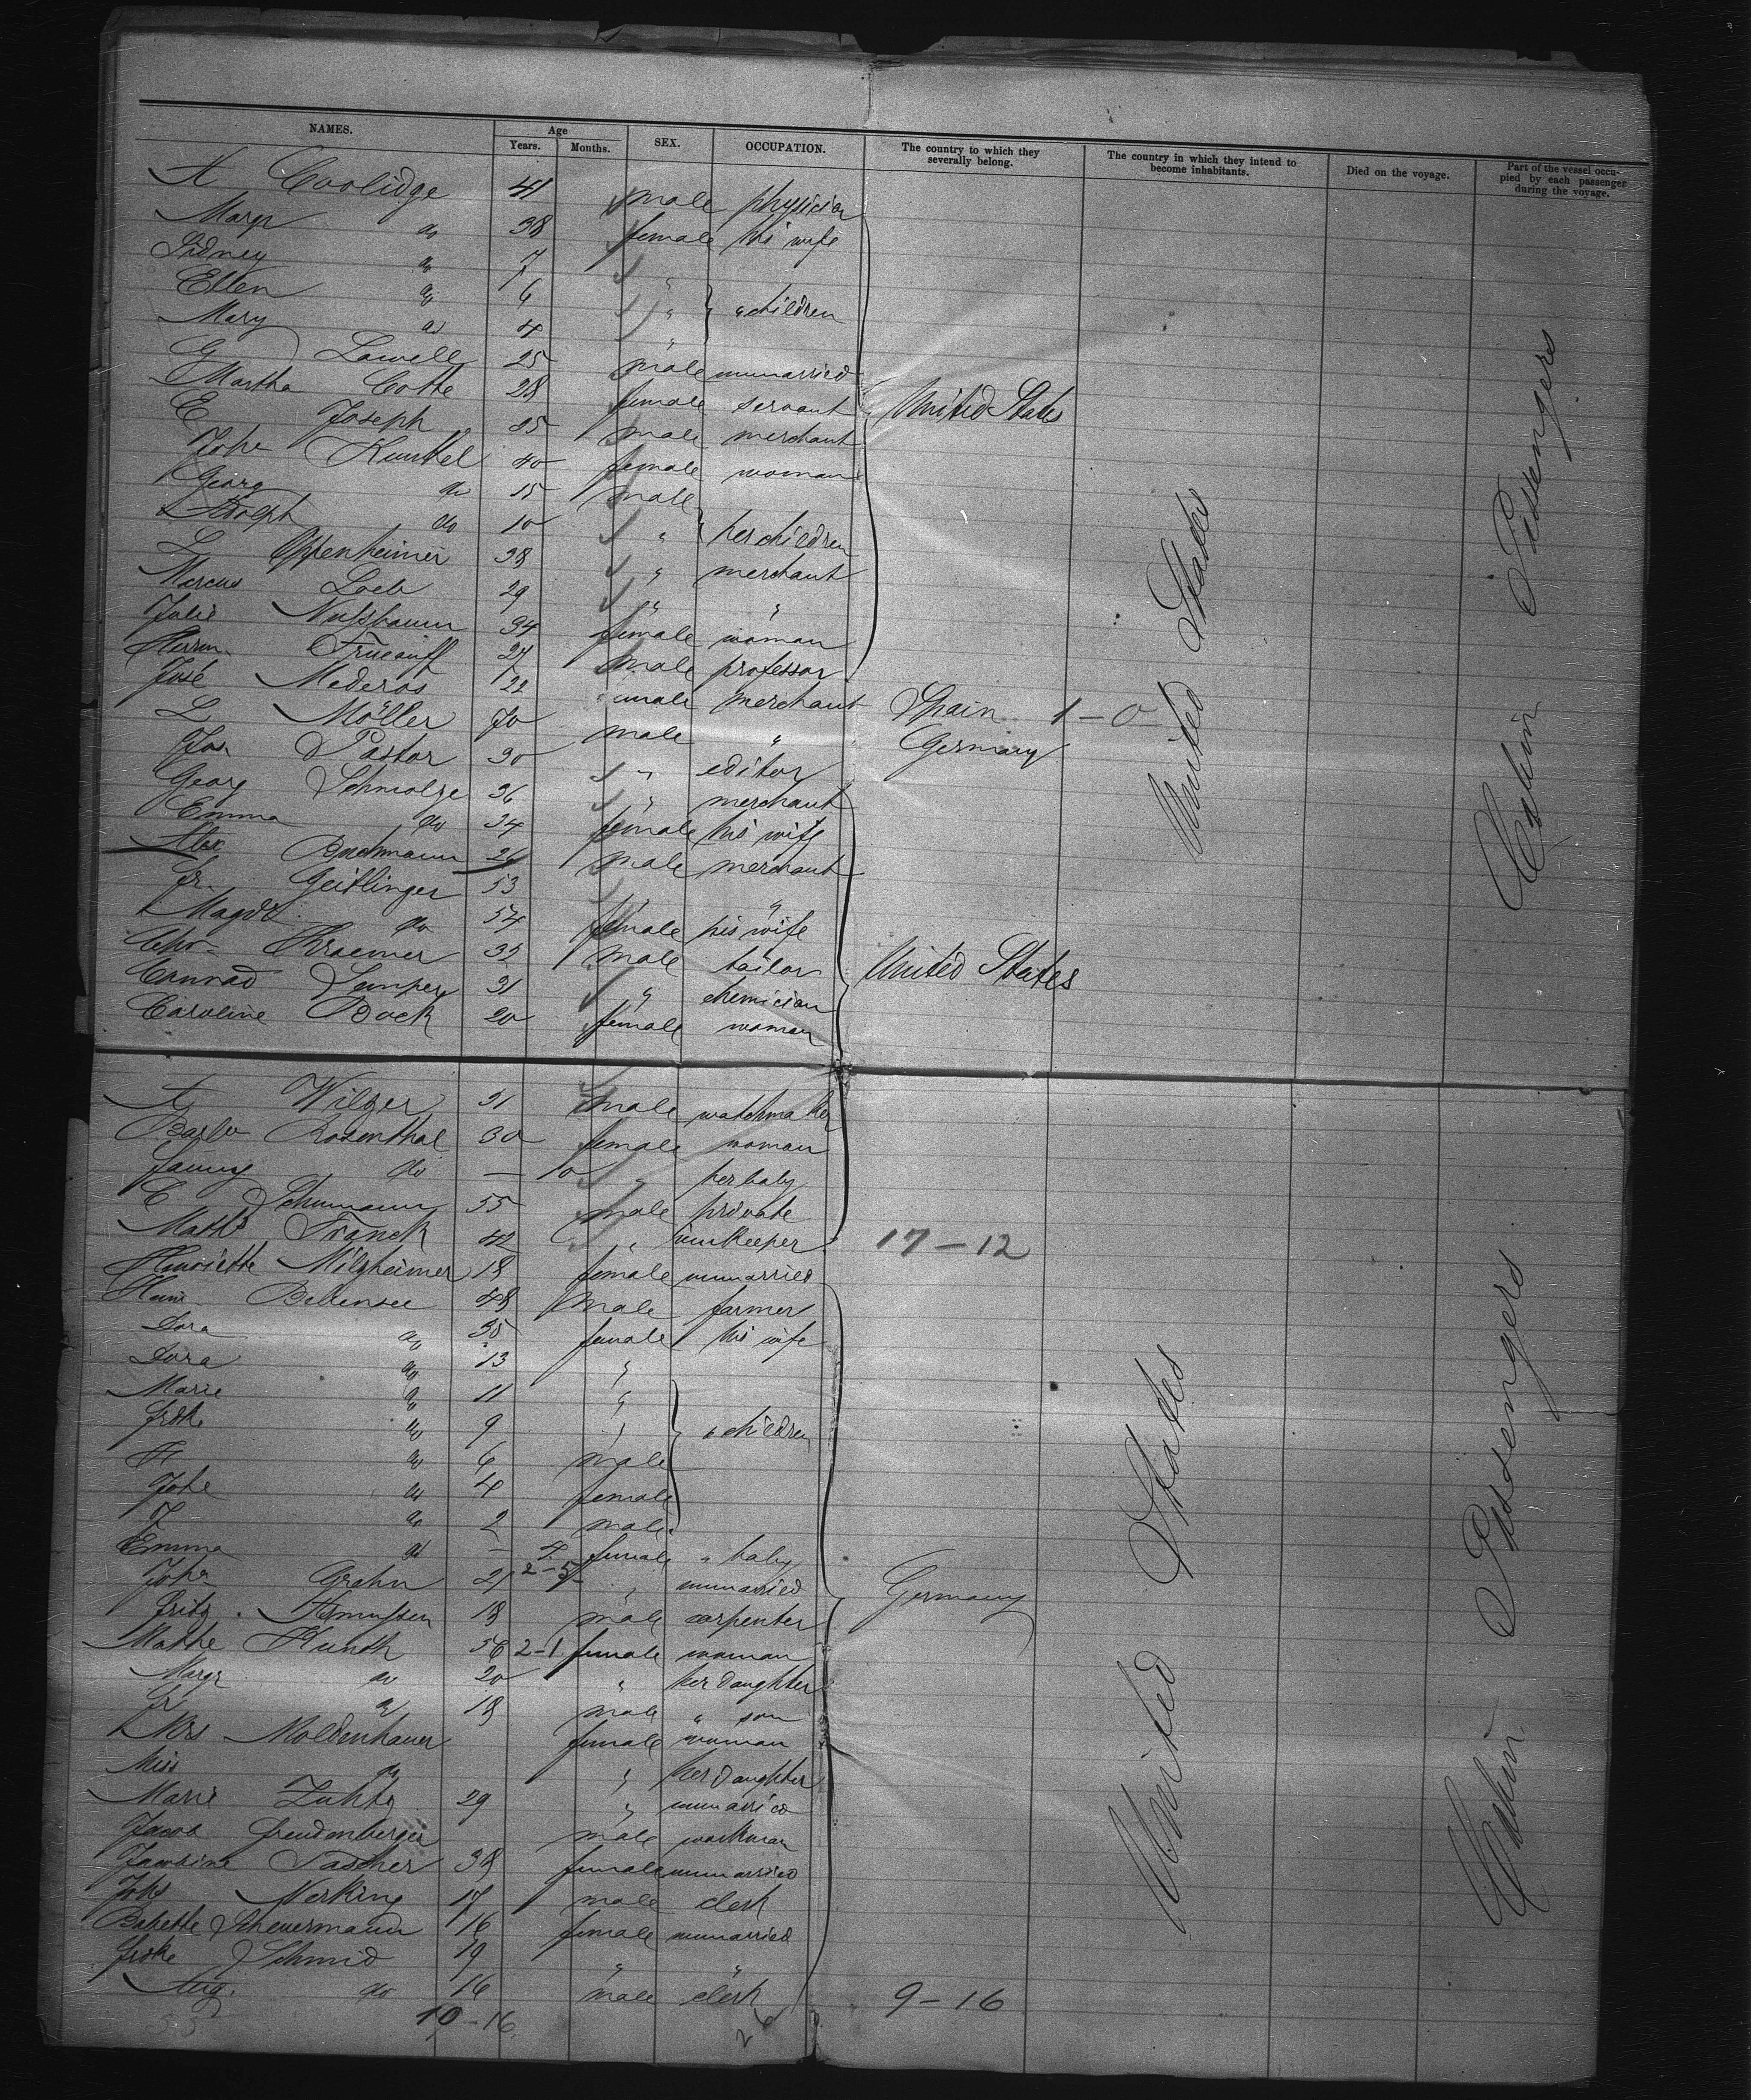 NAMES. Age Years. Months. SEX. OCCUPATION. The country to which they severally belong. The country in which they intend to become inhabitants. Died on the voyage. Part of the vessel occupied by each passenger during the voyage.
A Coolidge 41 male physician
Margr do 38 female his wife
Sidney do 7 "
Ellen do 6 " " children
Mary do 4 "
G Lowell 25 male unmarried
Martha Cotte 28 female servant United States
E Joseph 25 male merchant
Johe Kunkel 40 female woman
Georg do 15 male
Adolph do 10 " her children
L Oppenheimer 38 " merchant
Marcus Loeb 29 " "
Julie Nußbaum 34 female woman
Herrm. Trueauff 27 male professor
José Mederos 22 male merchant Spain 1-0
L Möller 70 male " Germany
Jos Pastor 30 " editor
Georg Schmolze 36 " merchant
Emma do 34 female his wife
Alex Bachmann 26 male merchant
Fr. Geitlinger 53 " "
Magd. do 54 female his wife
Chr. Kraemer 32 male tailor United States
Conrad Semper 31 " chemician
Caroline Bock 20 female woman
United States
Cabin Passengers
A Wilzer 31 male watchmaker
Barba Rosenthal 30 female woman
Fanny do — 10 " her baby
C Schumann 55 male private
Maths Franck 42 " innkeeper 17-12
Henriette Milzheimer 18 female unmarried
Heinr Bebensee 48 male farmer
Dora do 35 female his wife
Dora do 13 "
Marie do 11 "
Frdke do 9 " " children
H do 6 male
Johe do 4 female
J do 2 male
Emma do — 4 female " baby
Johe Grehn 21 2-5 " unmarried Germany
Fritz Asmußen 18 male carpenter
Mathe Hundt 56 2-1 female woman
Margr do 20 " her daughter
Fr do 18 male " son
Mrs Moldenhauer female woman
Miss do " her daughter
Marie Zuhtz 29 " unmarried
Jacob Freudenberger male workman
Jacobine Sascher 38 female unmarried
Johs Nerking 17 male clerk
Babette Scheuermann 16 female unmarried
Frdke Schmid 19 " "
Aug. do 16 male clerk 9-16
10-16
United States
Cabin Passengers